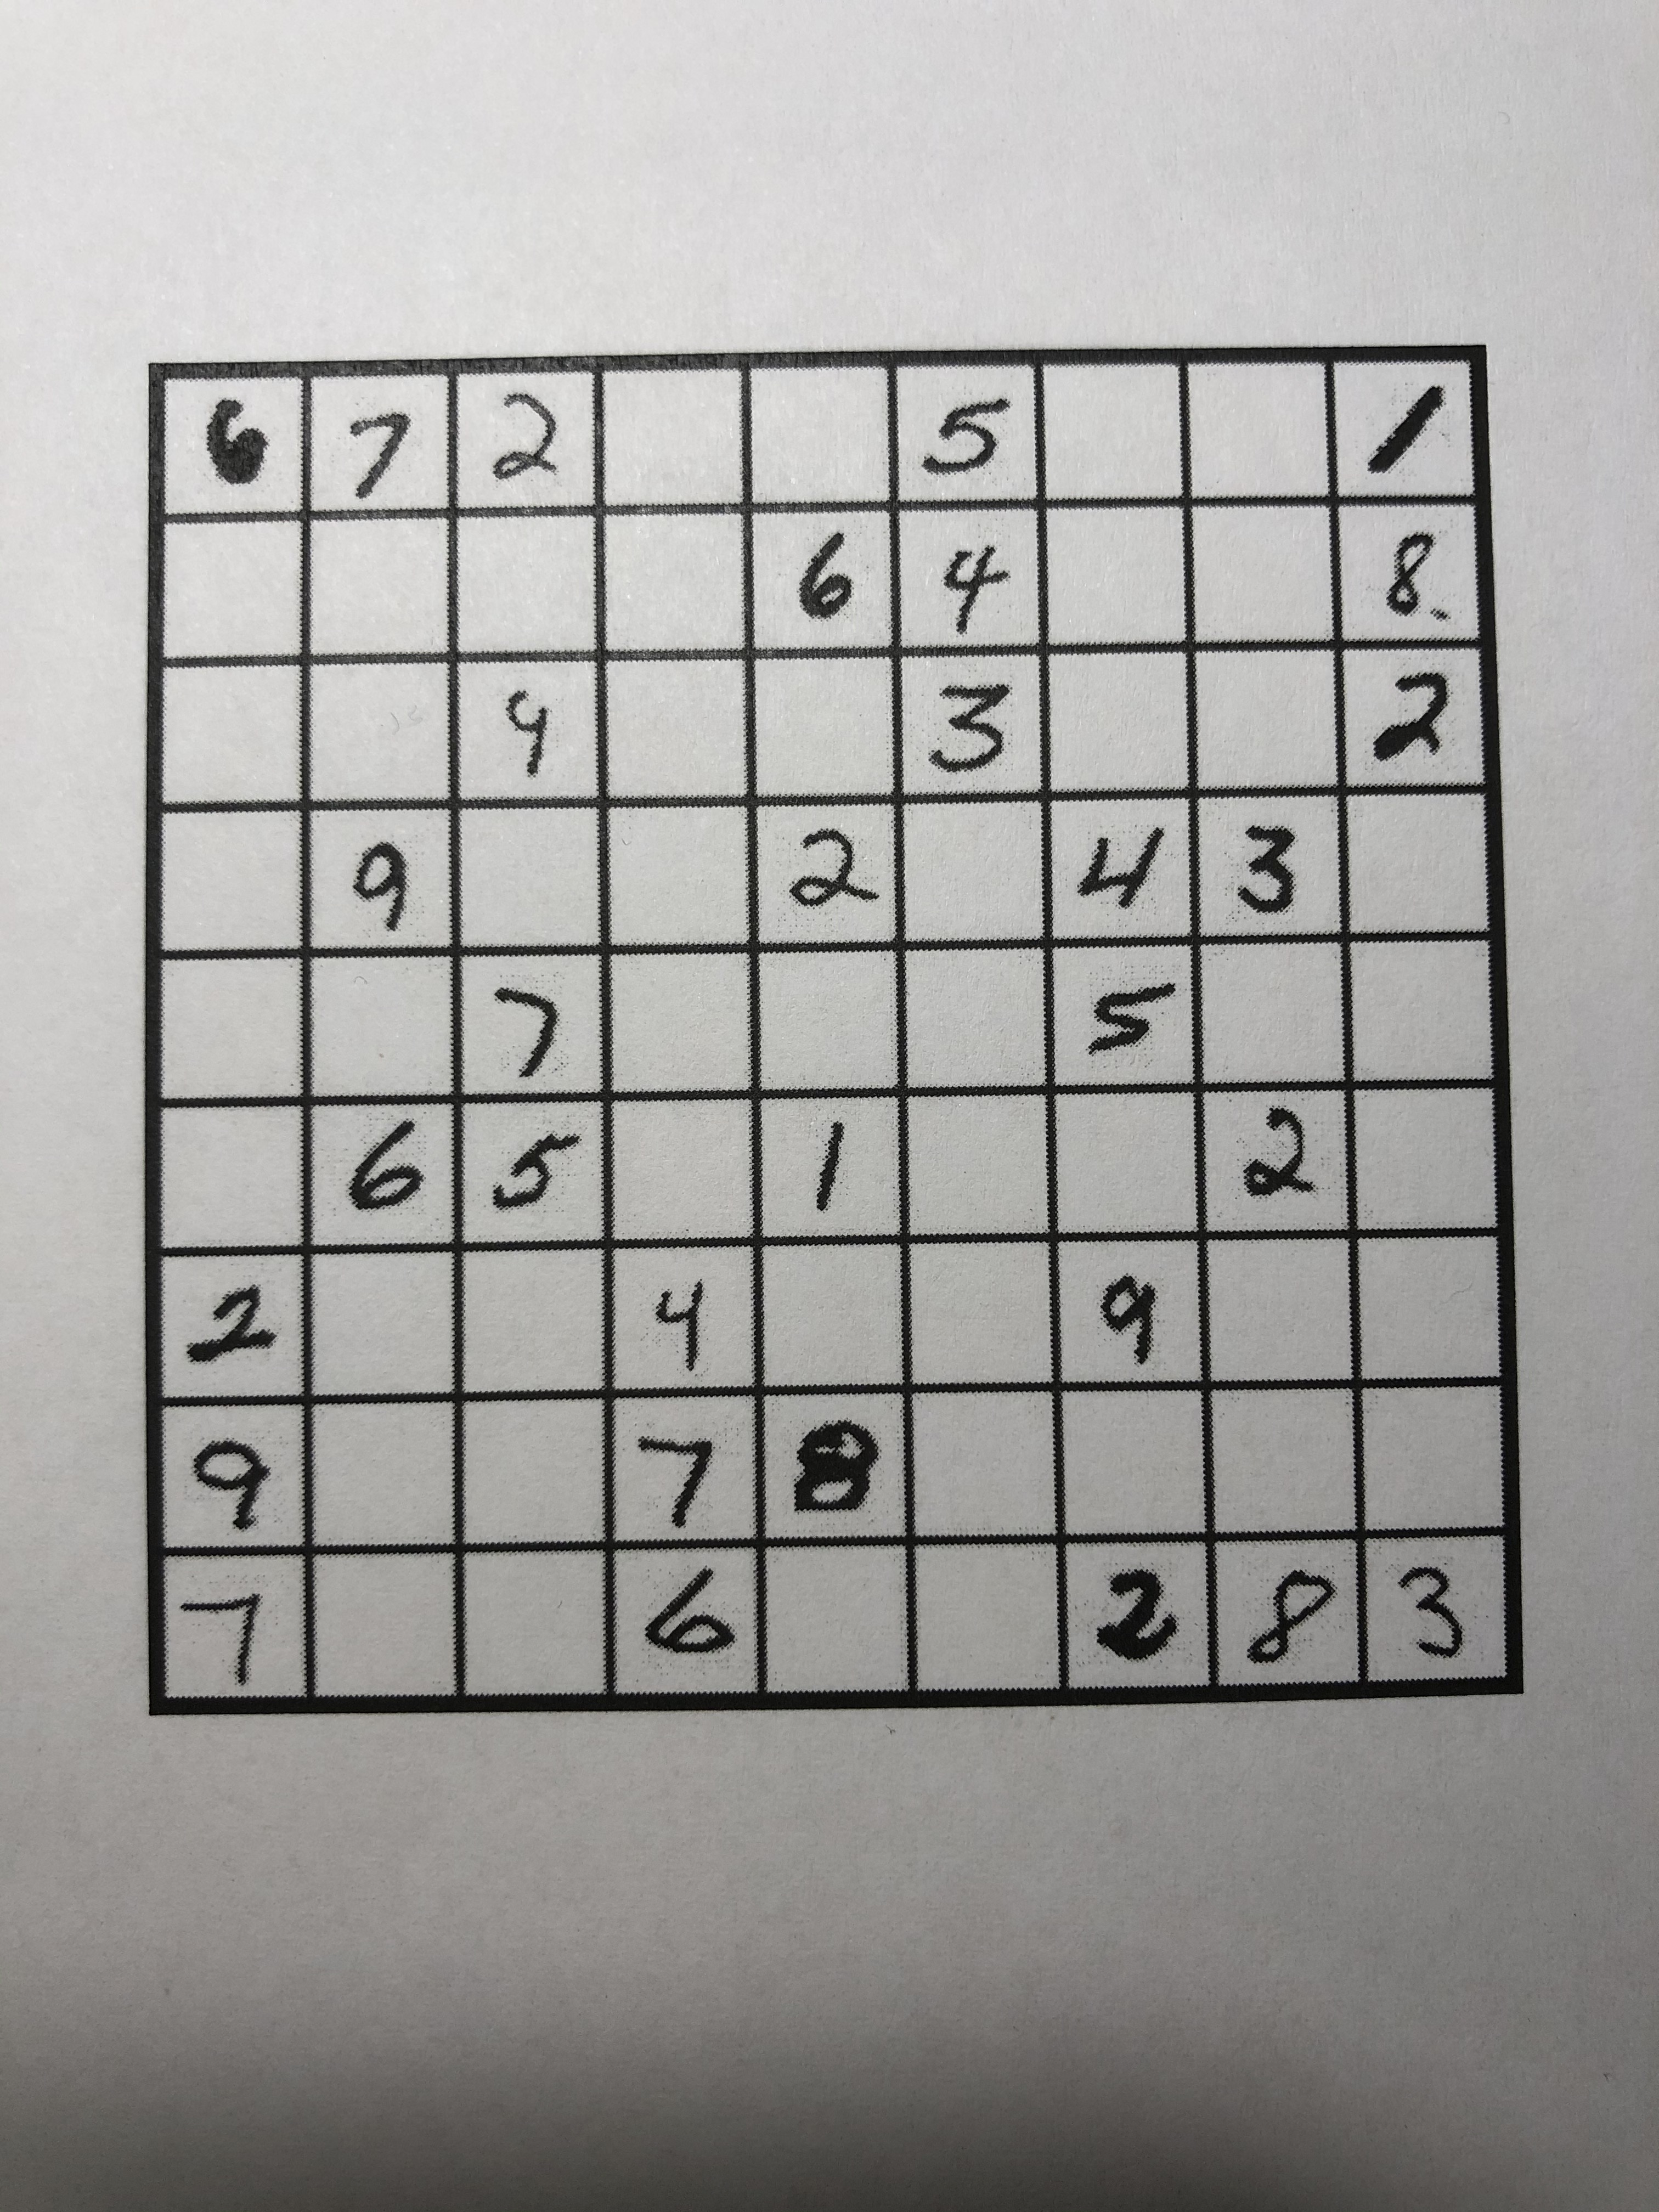 6 7 2 5 1
6 4 8
9 3 2
9 2 4 3
7 5
6 5 1 2
2 4 9
9 7 8
7 6 2 8 3